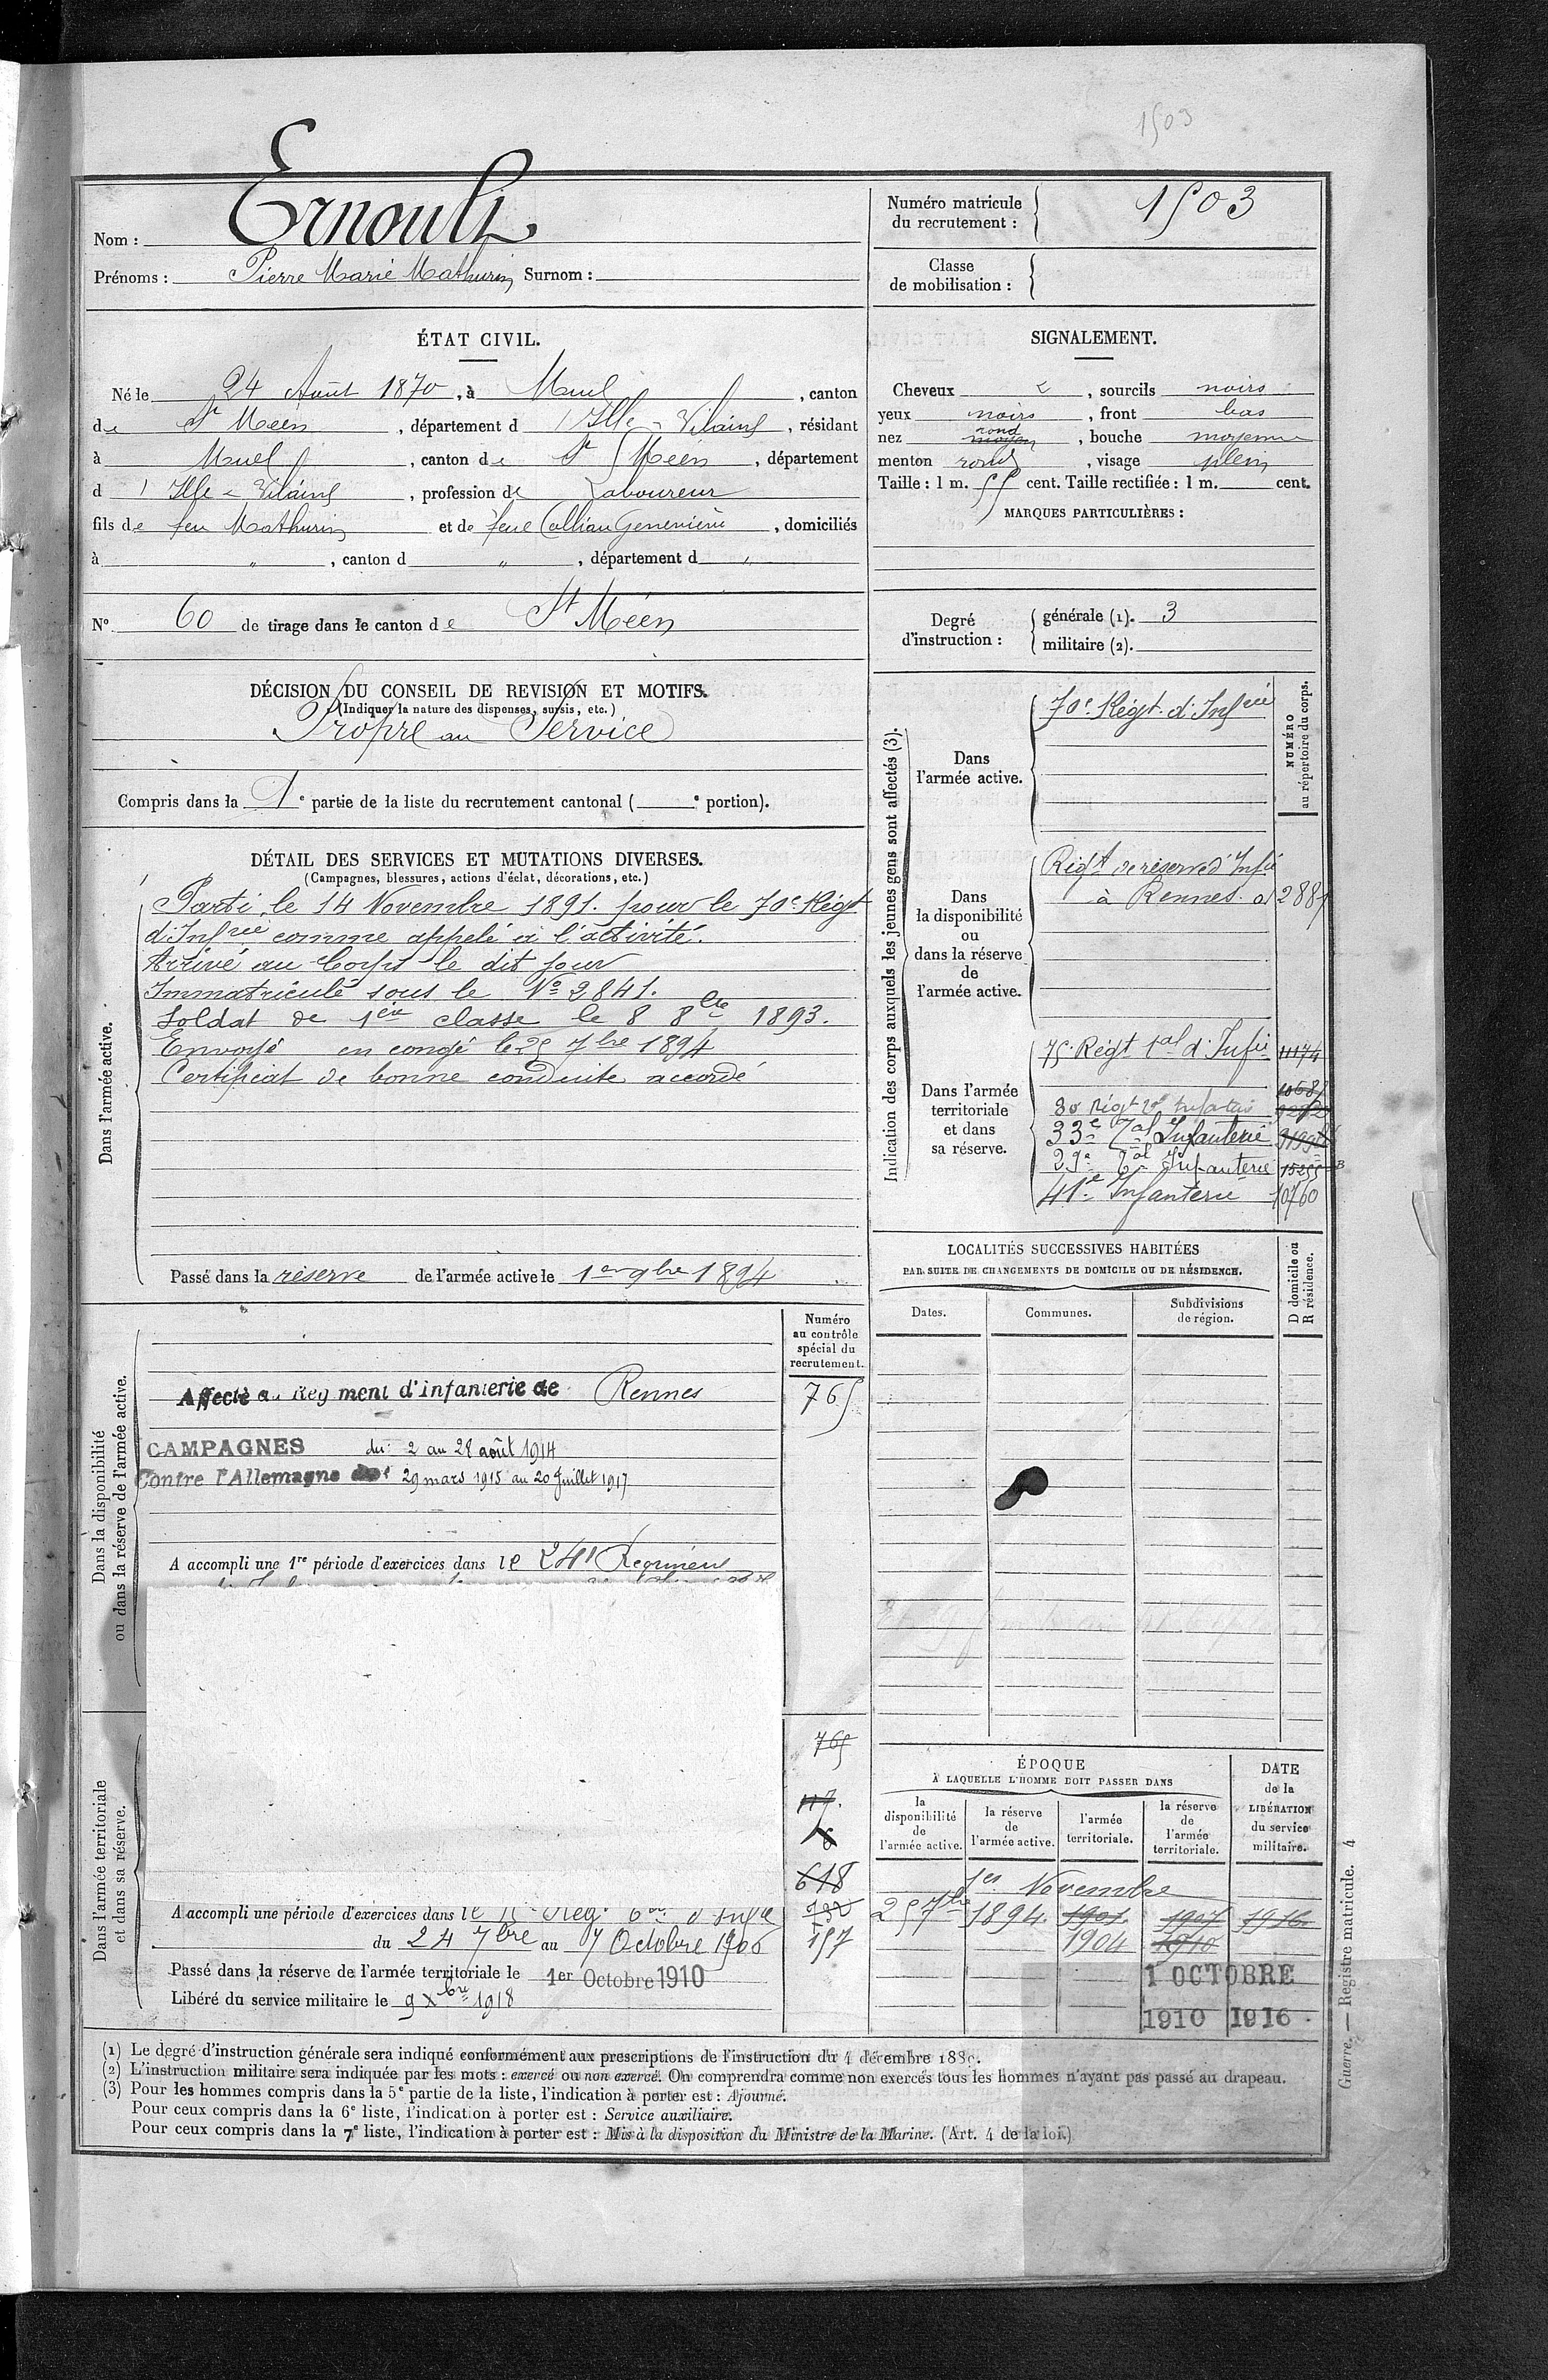 1503
Nom : Ernoult
Prénoms : Pierre Marie Mathurin Surnom :
Numéro matricule du recrutement : 1503
Classe de mobilisation :
ÉTAT CIVIL.
Né le 24 Août 1870, à Muel, canton
de St Méen, département d'Ille-Vilaine, résidant
à Muel, canton de St Méen, département
d'Ille-Vilaine, profession de Laboureur
fils de feu Mathurin et de feue Collian Geneviève, domiciliés
à " , canton d " , département d "
N° 60 de tirage dans le canton de St Méen
SIGNALEMENT.
Cheveux , sourcils noirs
yeux noirs, front bas
nez moyen rond, bouche moyenne
menton rond, visage plein
Taille : 1 m. 55 cent. Taille rectifiée : 1 m. cent.
MARQUES PARTICULIÈRES :
Degré d'instruction : générale (1). 3
militaire (2).
DÉCISION DU CONSEIL DE REVISION ET MOTIFS.
(Indiquer la nature des dispenses, sursis, etc.)
Propre au Service
Compris dans la 1e partie de la liste du recrutement cantonal ( e portion).
DÉTAIL DES SERVICES ET MUTATIONS DIVERSES.
(Campagnes, blessures, actions d'éclat, décorations, etc.)
Dans l'armée active.
Parti le 14 Novembre 1891. pour le 70e Régt
d'Infrie comme appelé à l'activité.
Arrivé au Corps le dit jour
Immatriculé sous le No 2841.
Soldat de 1ère classe le 8 8bre 1893.
Envoyé en congé le 25 7bre 1894
Certificat de bonne conduite accordé
Passé dans la réserve de l'armée active le 1er 9bre 1894
Indication des corps auxquels les jeunes gens sont affectés (3).
NUMÉRO au répertoire du corps.
Dans l'armée active.
70e Régt. d'Infrie
Dans la disponibilité ou dans la réserve de l'armée active.
Rigt de réserve d'Infie
à Rennes.
Dans l'armée territoriale et dans sa réserve.
75 Régt tal d'Infie 11174
33e Tal Infanterie
29e Tal Infanterie
41e Infanterie 10760
LOCALITÉS SUCCESSIVES HABITÉES
PAR SUITE DE CHANGEMENTS DE DOMICILE OU DE RÉSIDENCE.
Dates. Communes. Subdivisions de région. D domicile ou R résidence.
Dans la disponibilité ou dans la réserve de l'armée active.
Numéro au contrôle spécial du recrutement.
Affecté au Régiment d'infanterie de Rennes 765
CAMPAGNES du 2 au 28 août 1914
Contre l'Allemagne 29 mars 1915 au 20 Juillet 1917
A accompli une 1re période d'exercices dans le 241 Régiment
Dans l'armée territoriale et dans sa réserve.
765
117.
6
618
157
A accompli une période d'exercices dans le
du 24 7bre au 7 Octobre 1906
Passé dans la réserve de l'armée territoriale le 1er Octobre 1910
Libéré du service militaire le 9 Xbre 1918
ÉPOQUE
À LAQUELLE L'HOMME DOIT PASSER DANS
la disponibilité de l'armée active. la réserve de l'armée active. l'armée territoriale. la réserve de l'armée territoriale.
DATE de la LIBÉRATION du service militaire.
1er Novembre
25 7bre 1894 1901 1907 1916
1904 1910
1 OCTOBRE
1910 1916
(1) Le degré d'instruction générale sera indiqué conformément aux prescriptions de l'instruction du 4 décembre 1889.
(2) L'instruction militaire sera indiquée par les mots : exercé ou non exercé. On comprendra comme non exercés tous les hommes n'ayant pas passé au drapeau.
(3) Pour les hommes compris dans la 5e partie de la liste, l'indication à porter est : Ajourné.
Pour ceux compris dans la 6e liste, l'indication à porter est : Service auxiliaire.
Pour ceux compris dans la 7e liste, l'indication à porter est : Mis à la disposition du Ministre de la Marine. (Art. 4 de la loi.)
Guerre. — Registre matricule. 4